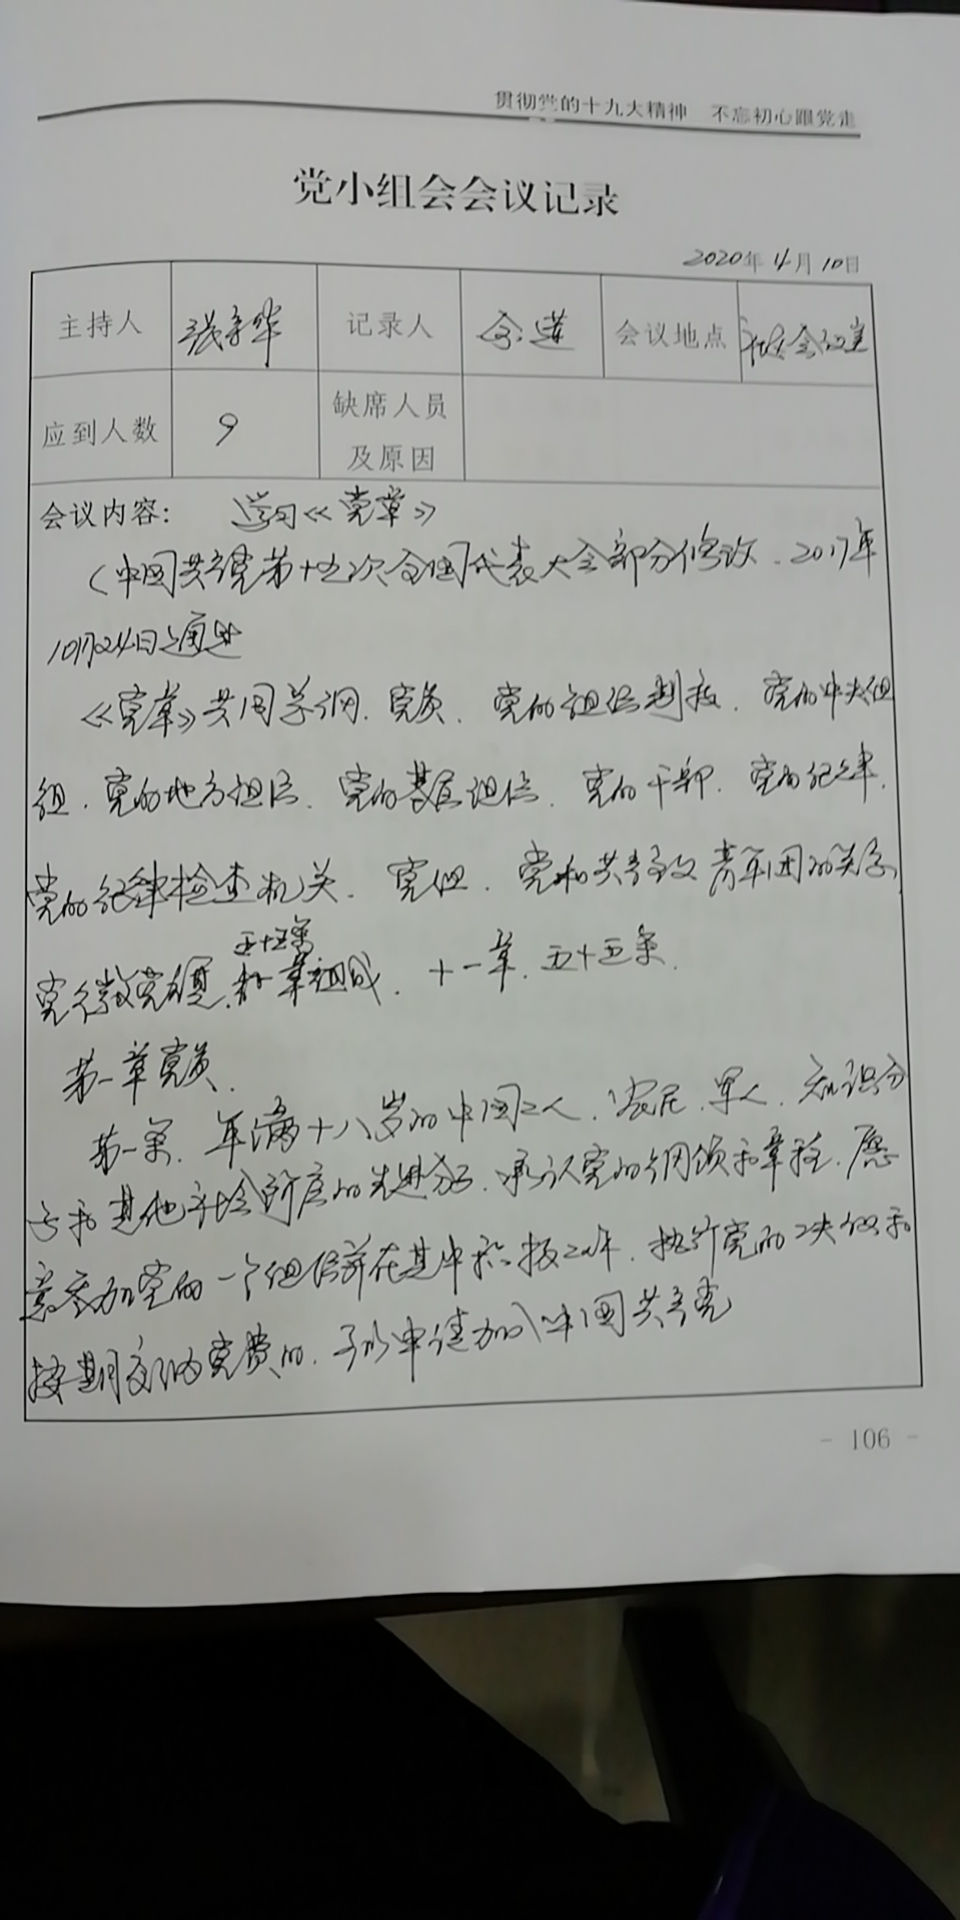 贯彻党的十九大精神 不忘初心跟党走
党小组会会议记录
2020年4月10日
主持人 记录人 会议地点 会议室
应到人数 9 缺席人员
及原因
会议内容: 学习《党章》
(中国共产党第十九次全国代表大会部分修改.2017年
10月24日通过
《党章》共因总纲.党员.党的组织制度.党的中央组
组.党的地方组织.党的基层组织.党的干部.党的纪律.
党的纪律检查机关.党组.党和共产主义青年团的关系
五十五条
党徽党旗. 章组成.十一章.五十五条.
第一章党员.
第一条.年满十八岁的中国工人.农民.军人.知识分
子和其他社会阶层的先进分子.承认党的纲领和章程.愿
意参加党的一个组织并在其中积极工作.执行党的决议和
按期交纳党费的.可以申请加入中国共产党
- 106 -